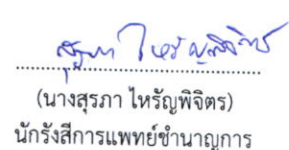 สุรภา ไหรัญพิจิตร
(นางสุรภา ไหรัญพิจิตร)
นักรังสีการแพทย์ชำนาญการ